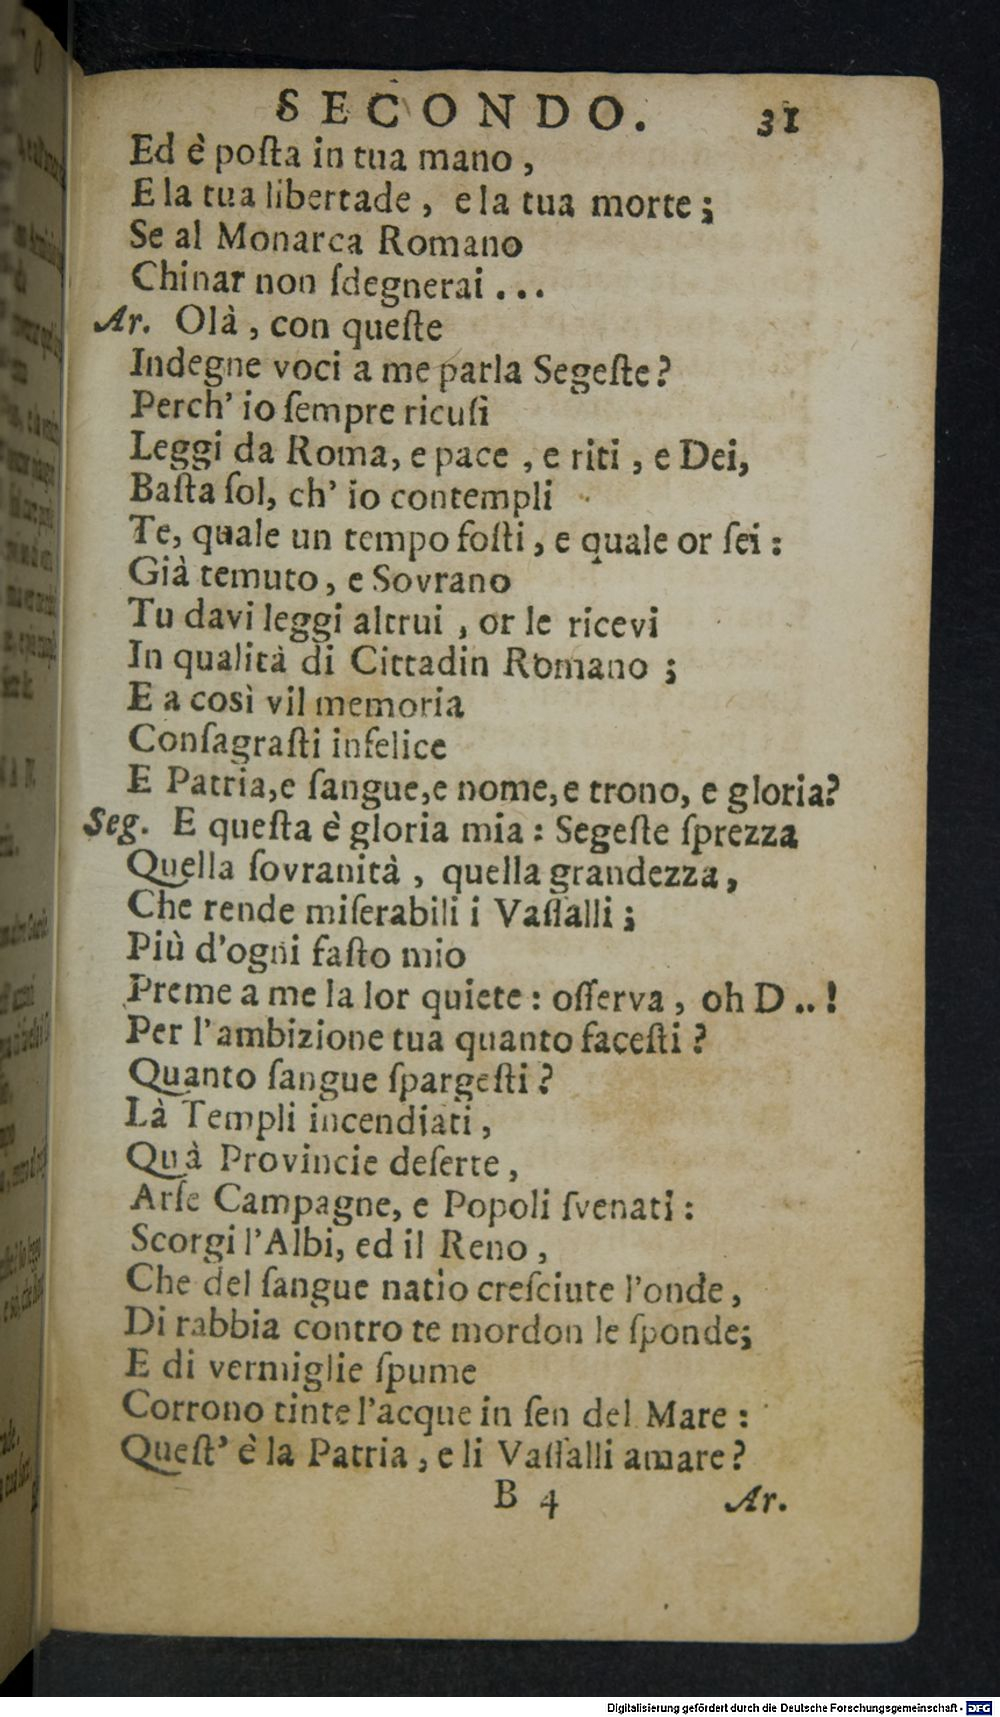 SECONDO. 31
Ed è poſta in tua mano ,
E la tua libertade , e la tua morte ;
Se al Monarca Romano
Chinar non ſdegnerai . . .
Ar. Olà , con queſte
Indegne voci a me parla Segeſte ?
Perch' io ſempre ricuſi
Leggi da Roma, e pace , e riti , e Dei,
Baſta ſol, ch' io contempli
Te, quale un tempo foſti , e quale or ſei :
Già temuto , e Sovrano
Tu davi leggi altrui , or le ricevi
In qualità di Cittadin Romano ;
E a così vil memoria
Conſagraſti infelice
E Patria,e ſangue,e nome,e trono, e gloria?
Seg. E queſta è gloria mia : Segeſte ſprezza
Quella ſovranità , quella grandezza ,
Che rende miſerabili i Vaſſalli ;
Più d'ogni faſto mio
Preme a me la lor quiete : oſſerva , oh D .. !
Per l'ambizione tua quanto faceſti ?
Quanto ſangue ſpargeſti ?
Là Templi incendiati ,
Quà Provincie deſerte ,
Arſe Campagne, e Popoli ſvenati :
Scorgi l'Albi, ed il Reno ,
Che del ſangue natio creſciute l'onde ,
Di rabbia contro te mordon le ſponde;
E di vermiglie ſpume
Corrono tinte l'acque in ſen del Mare :
Queſt' è la Patria , e li Vaſſalli amare ?
B 4 Ar.
Digitalisierung gefördert durch die Deutsche Forschungsgemeinschaft - DFG